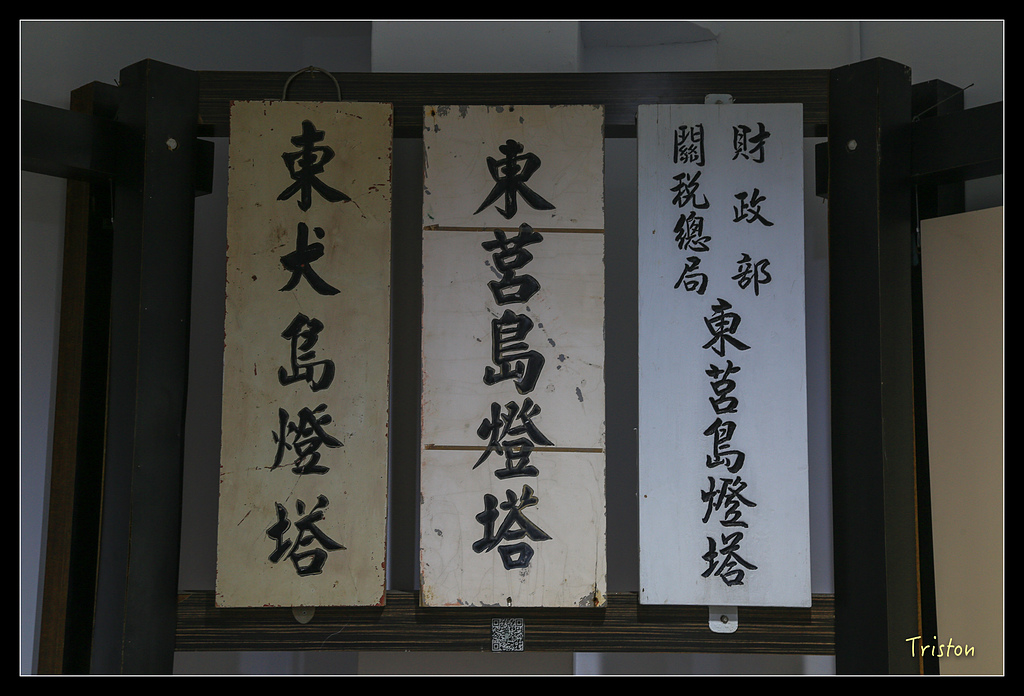 東犬島燈塔
東莒島燈塔
財政部
關稅總局
東莒島燈塔
Triston